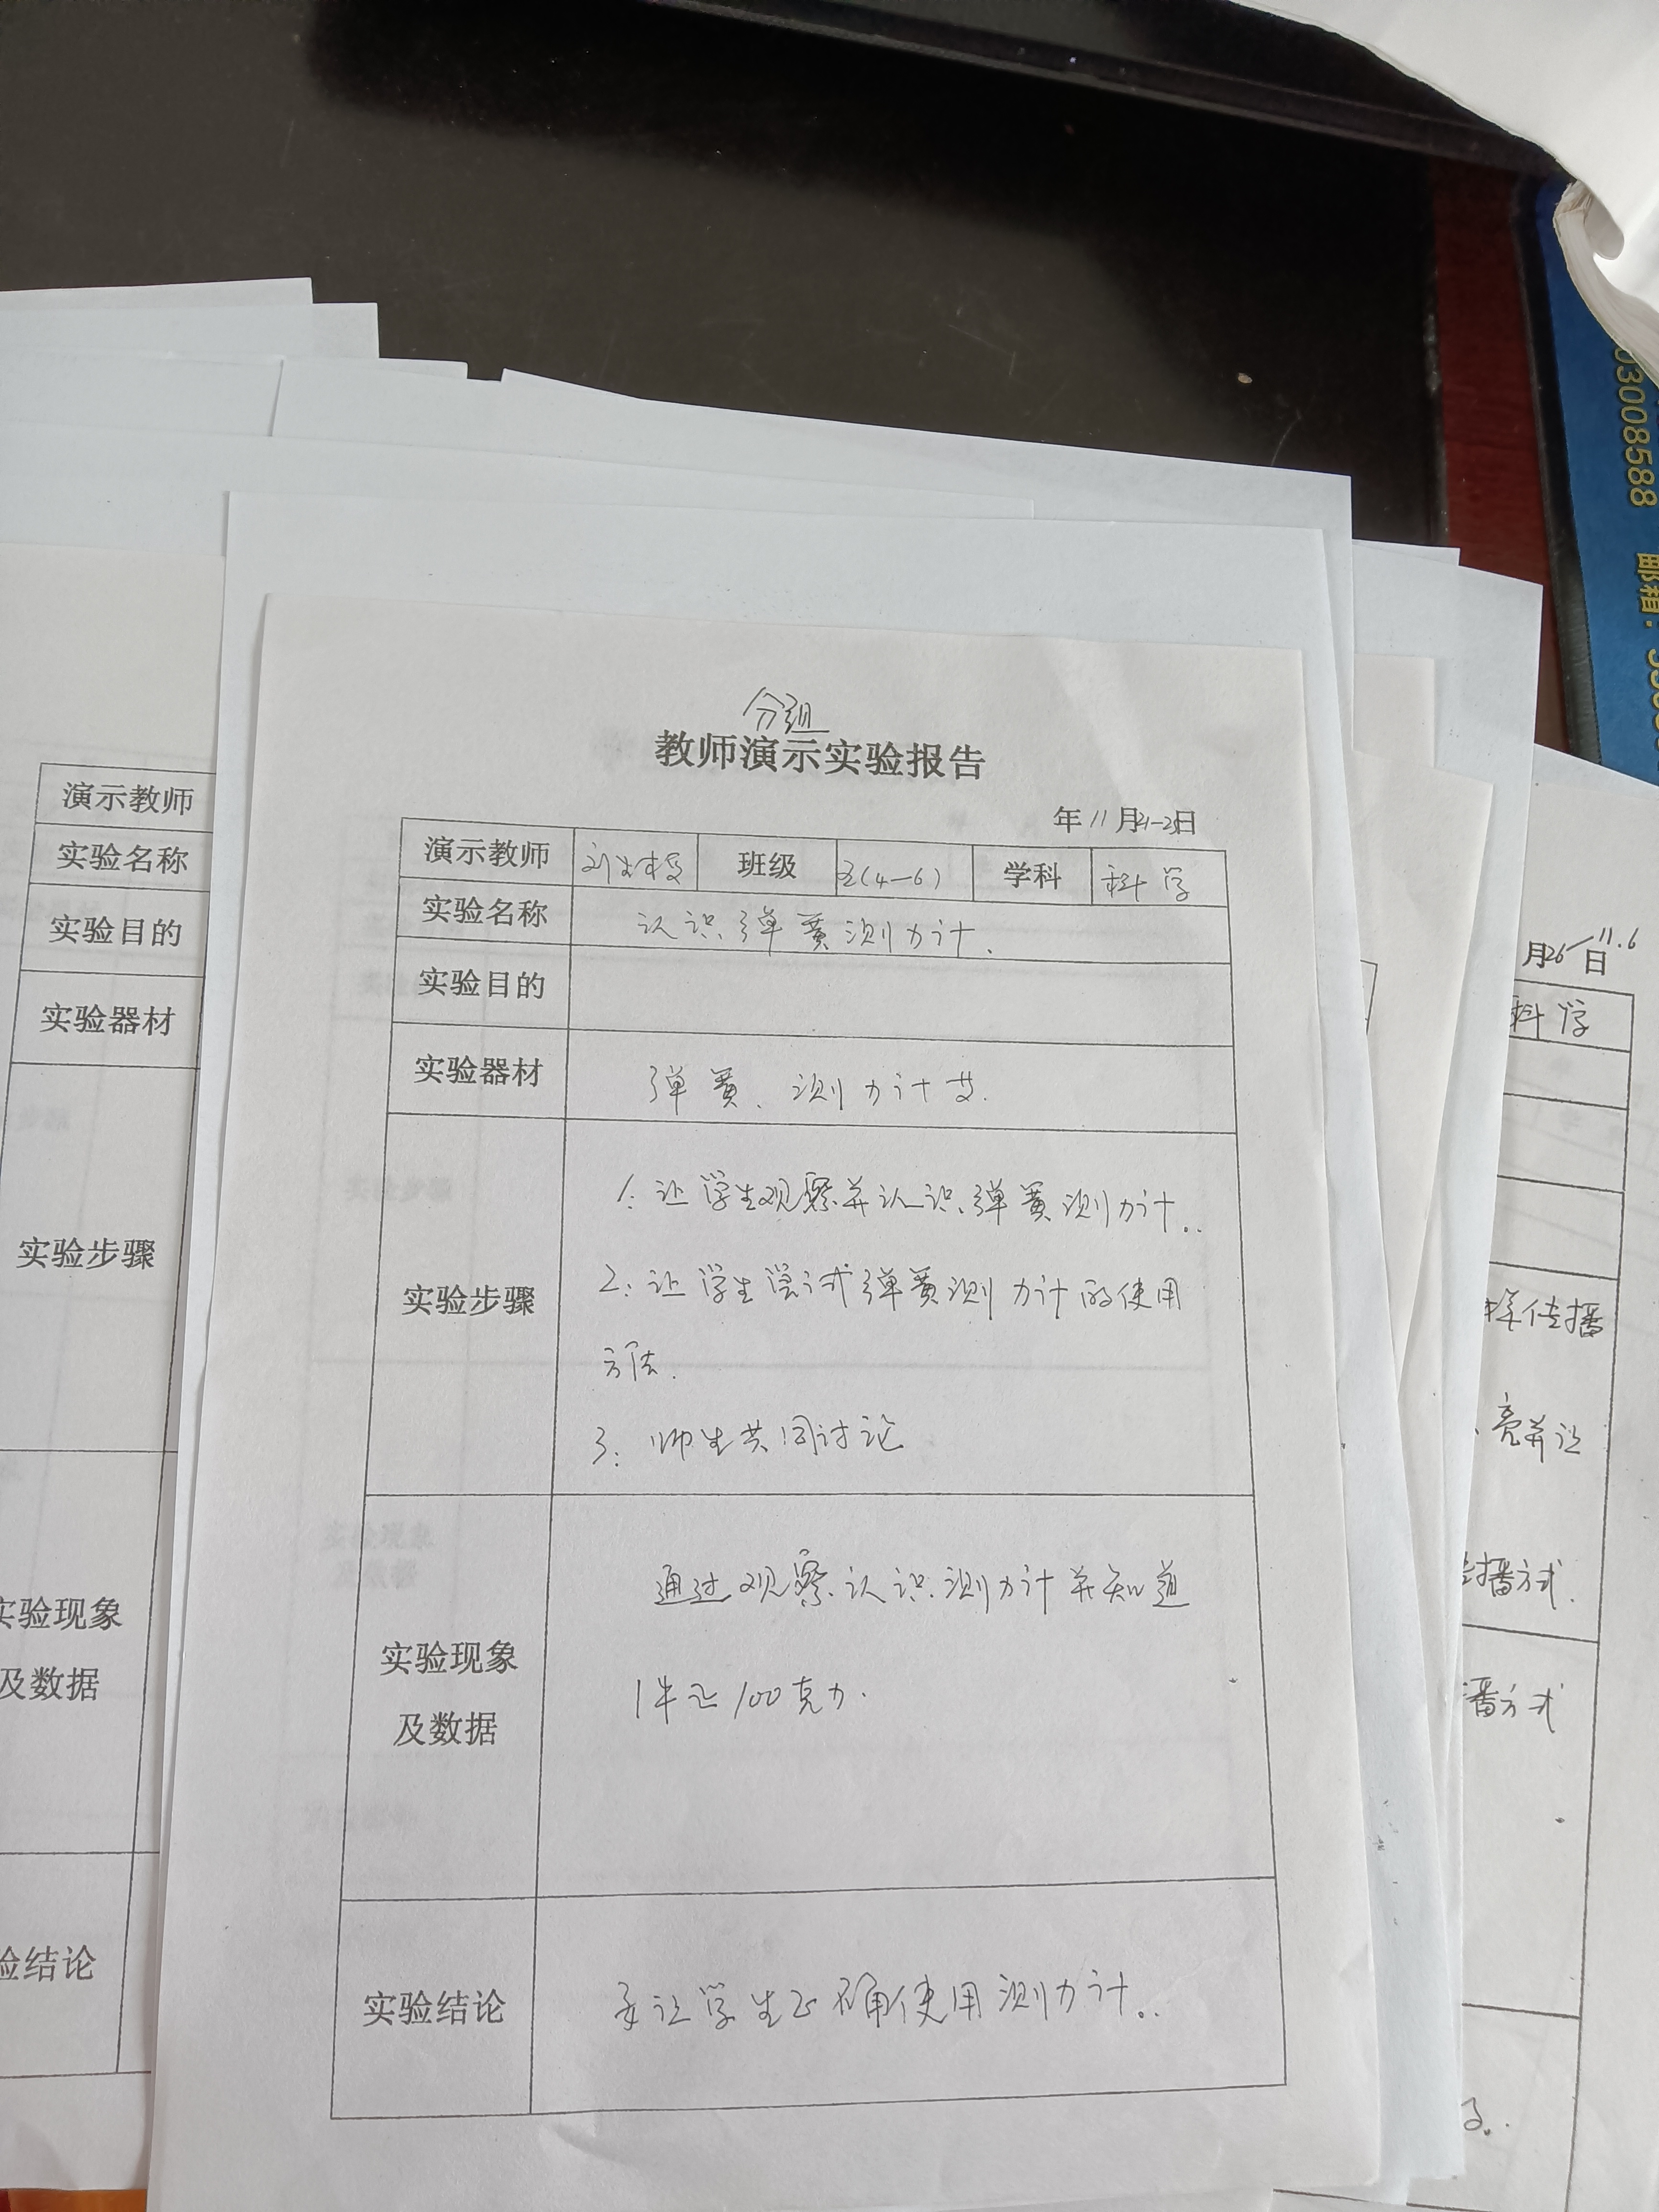 分组
教师演示实验报告
年 11 月21-25日
演示教师 班级 五(4—6) 学科 科学
实验名称 认识弹簧测力计.
实验目的
实验器材 弹簧、测力计等.
实验步骤
1: 让学生观察并认识弹簧测力计..
2: 让学生尝试弹簧测力计的使用
方法.
3: 师生共同讨论
实验现象
及数据
通过观察认识测力计并知道
1牛≈100克力.
实验结论 要让学生正确使用测力计..
演示教师
实验名称
实验目的
实验器材
实验步骤
实验现象
及数据
验结论
月26—11.6
日
科学
样传播
、亮并让
播方式.
播方式
了..
0300858​8
邮箱: